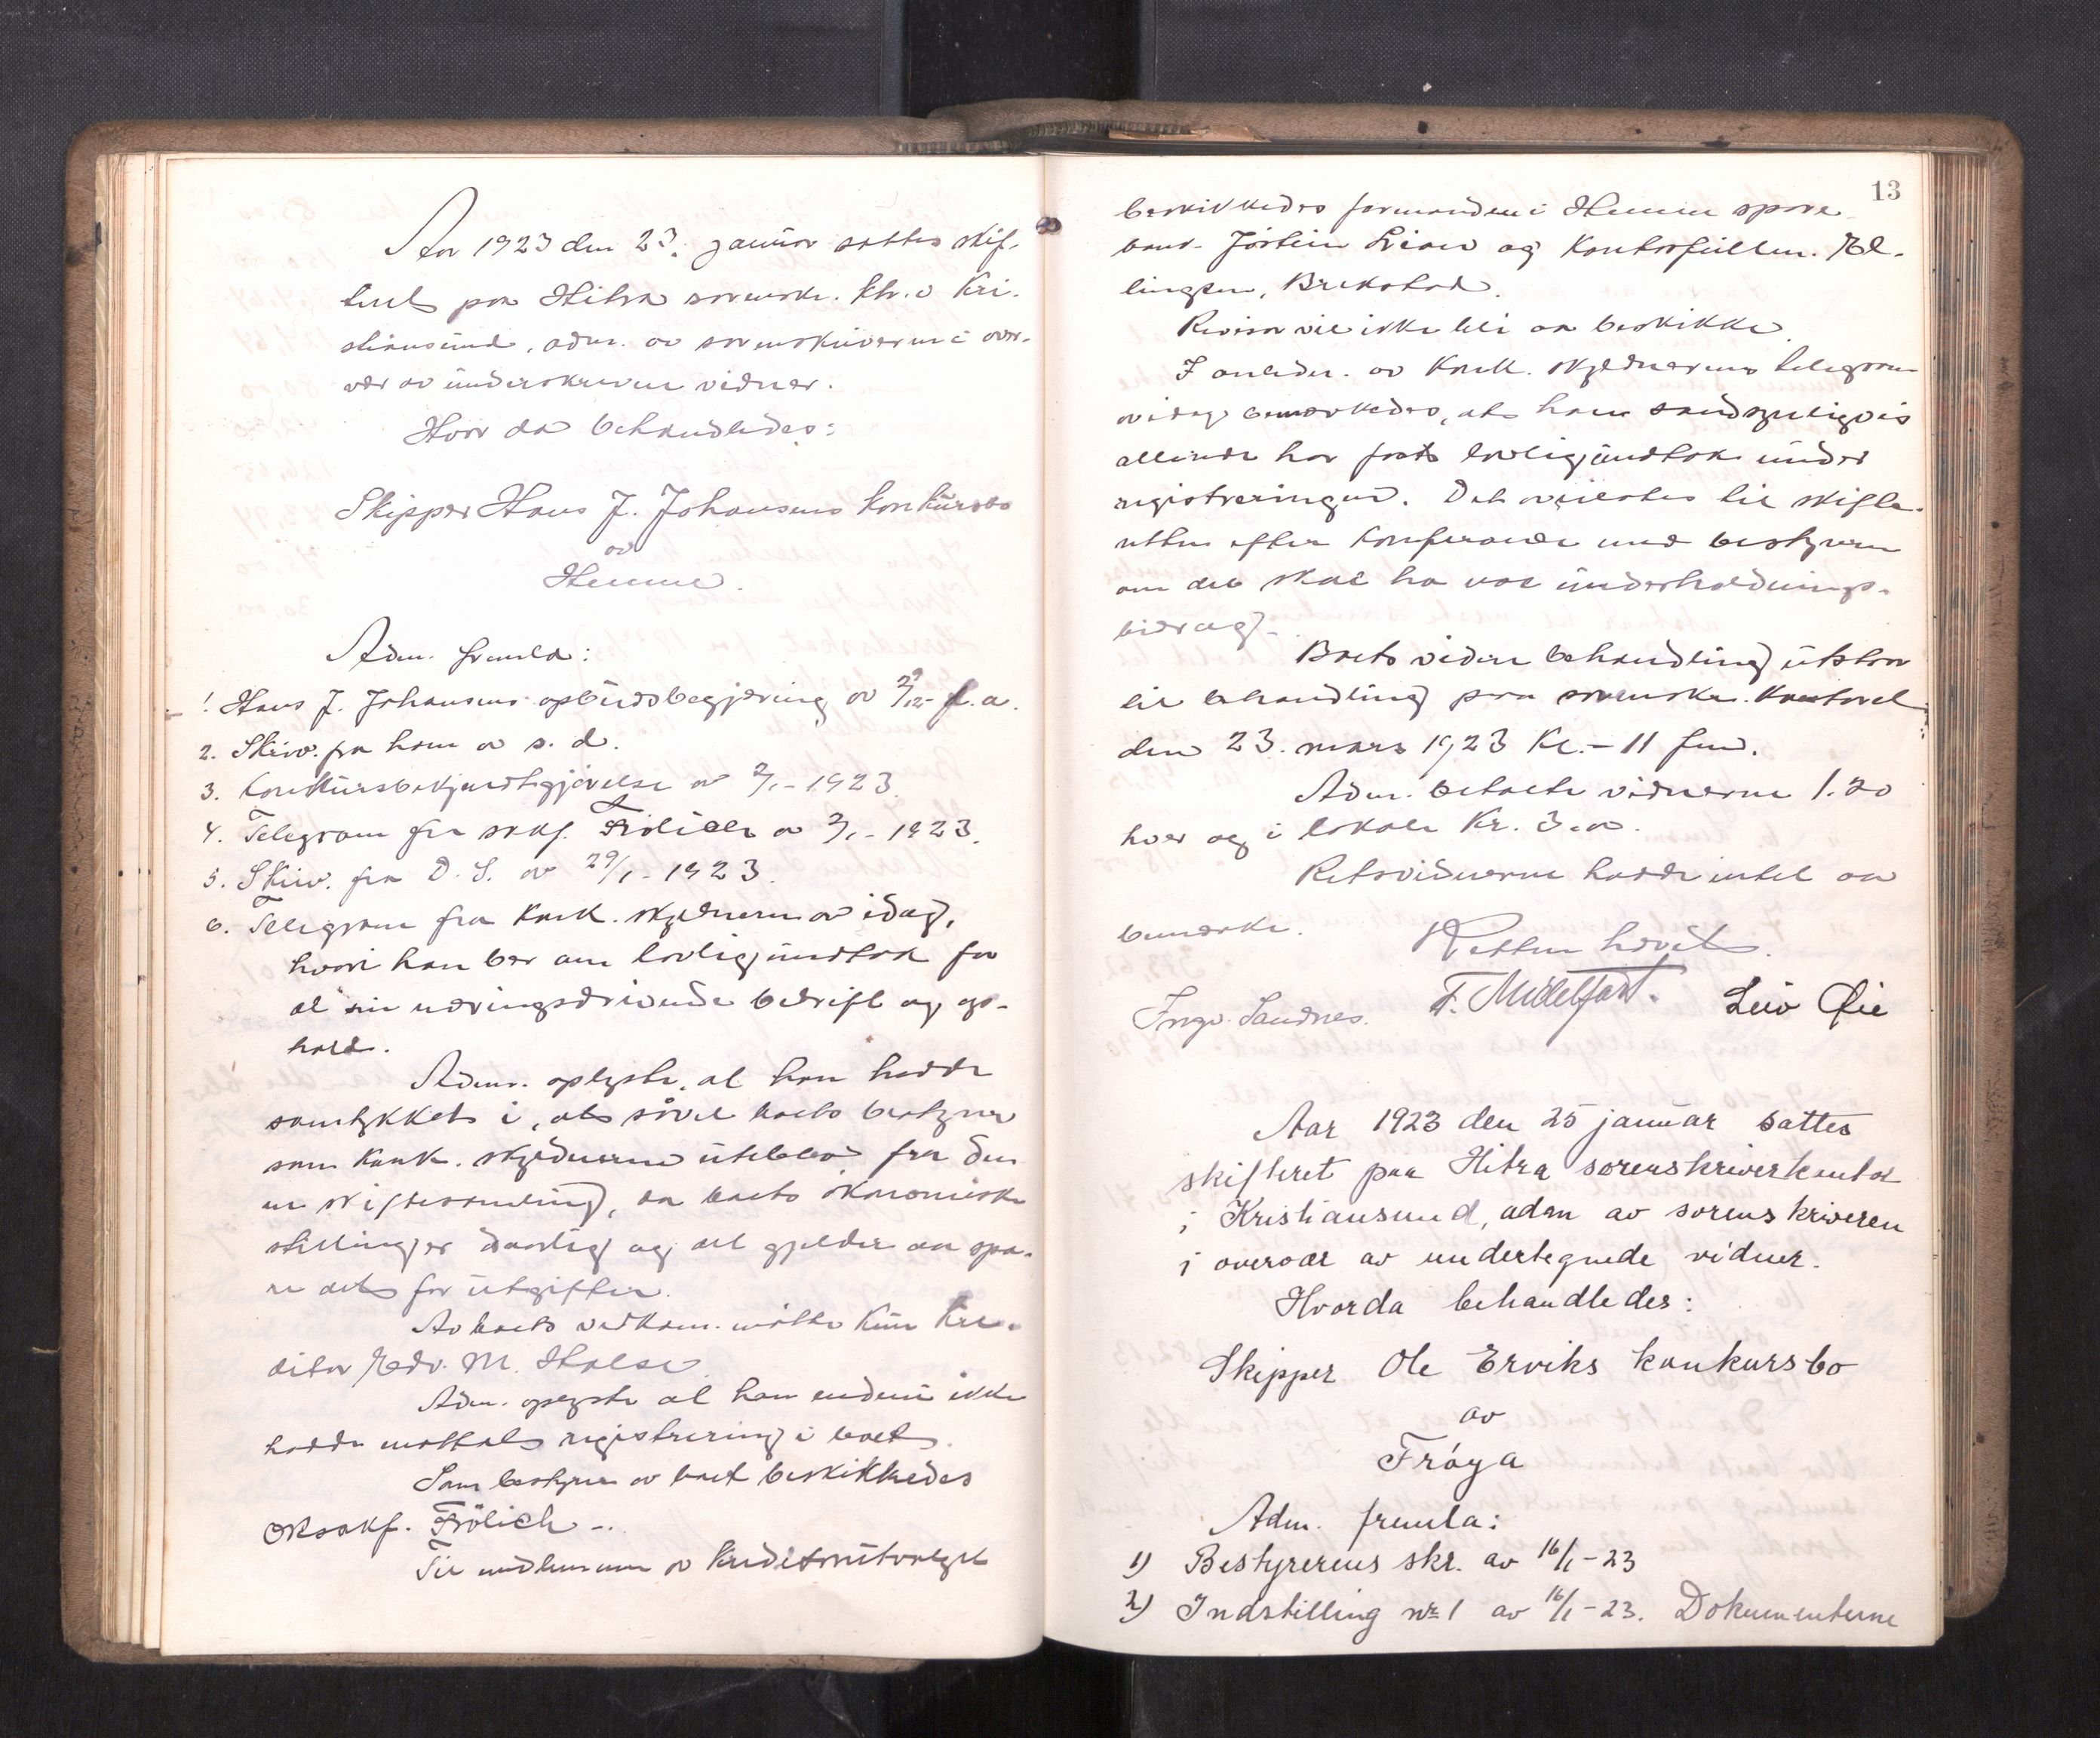 Aar 1923 den 23. januar sattes skif-
teret paa Hitra sorenskr. ktr. i Kri-
stiansund, adm. av sorenskriveren i over-
vær av underskrevne vidner.
Hvor da behandledes:
Skipper Hans J. Johansens konkursbo
av
Hemne.
Adm. fremla:
1. Hans J. Johansens opbudsbegjæring av 29/12 f.a.
2. Skriv. fra ham av s. d.
3. Konkursbekjendtgjørelse av 2/1 - 1923.
4. Telegram fra sakf. Frölich av 2/1 - 1923.
5. Skriv. fra D. S. av 29/1 - 1923.
6. Telegram fra konk. skyldneren av idag,
hvori han ber om lovlig undtak for
al sin næringsdrivende bedrift og ops-
hold.
Adm. oplyste, at han hadde
samtykket i, at såvel boets bestyrer
som konk. skyldneren uteblev fra den-
ne skiftesamling, da boets økonomiske
stilling er daarlig og det gjelder aa spa-
re det for utgifter.
Av boets vedkom. møtte kun kre-
ditor Edv. M. Halse.
Adm. oplyste at han endnu ikke
hadde mottat registrering i boet.
Som bestyrer av boet beskikkedes
O.R.sakf. Frölich -.
Til medlemmer av kreditorutvalget
13
beskikkedes formanden i Hemne spare-
bank Jostein Lian og kontorfullm. El-
lingsen, Brekstad.
Revisor vil ikke bli aa beskikke.
I anledn. av konk. skyldnerens telegram
av idag bemerkedes, at han sandsynligvis
allerede har faat lovlig undtak under
registreringen. Det overlates til skifte-
retten efter konferanse med bestyreren
om det skal ha noe underholdnings-
bidrag.
Boets videre behandling utstaar
til behandling paa sorenskr. kontoret
den 23. mars 1923 kl. - 11 fmd.
Adm. betalte vidnerne 1.20
hver og i lokale Kr. 3.00.
Retsvidnerne hadde intet aa
bemerke.
Retten hævet.
Ingv. Sandnes. F. Midelfart. Leiv Øie
Aar 1923 den 25 januar sattes
skifteret paa Hitra sorenskriverkontor
i Kristiansund, adm av sorenskriveren
i overvær av undertegnede vidner.
Hvorda behandledes:
Skipper Ole Erviks konkursbo
av
Frøya
Adm. fremla:
1) Bestyrerens skr. av 16/1 - 23
2) Indstilling nr 1 av 16/1 - 23. Dokumenterne